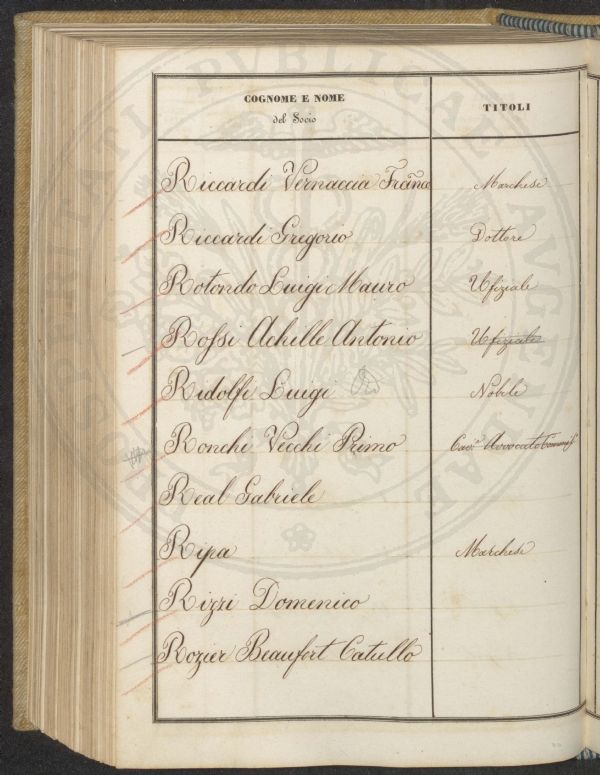 COGNOME E NOME
del Socio
TITOLI
Riccardi Vernaccia Franco Marchese
Riccardi Gregorio Dottore
Rotondo Luigi Mauro Ufiziale
Rossi Achille Antonio Ufiziale
Ridolfi Luigi Nobile
Ronchi Vecchi Primo Cav.e Avvocato
Real Gabriele
Ripa Marchese
Rizzi Domenico
Rozier Beaufort Catullo